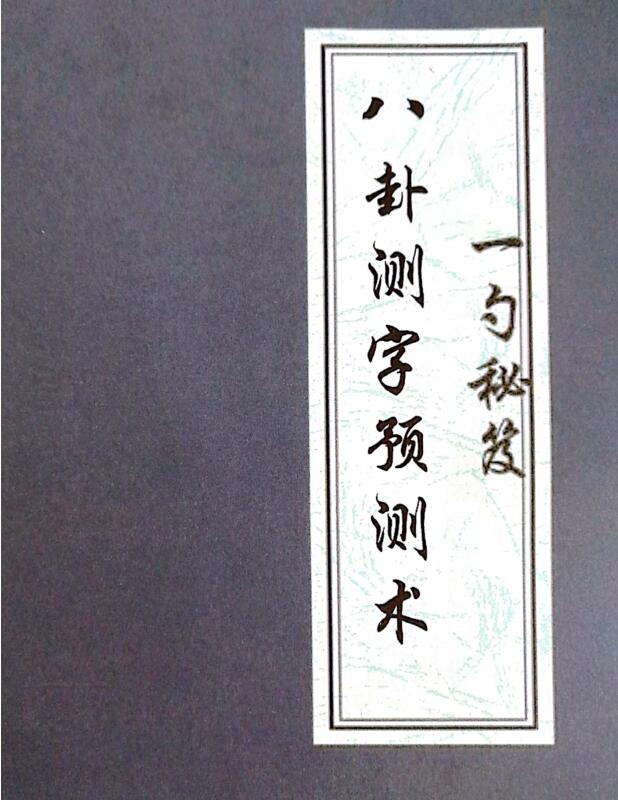 一勺秘笈
八卦测字预测术